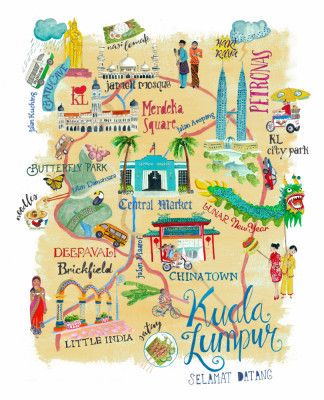 nasi lemak
HARI
RAYA
BATU CAVE
Jalan Kuching
I
KL
jamek mosque
PETRONAS
Merdeka
Square
Jalan Ampang
KL
city park
BUTTERFLY PARK
Jalan Damansara
noodles
Central Market
LUNAR New YEAR
DEEPAVALI
Brickfield
CHINATOWN
LITTLE INDIA
satay
Kuala
Lumpur
SELAMAT DATANG